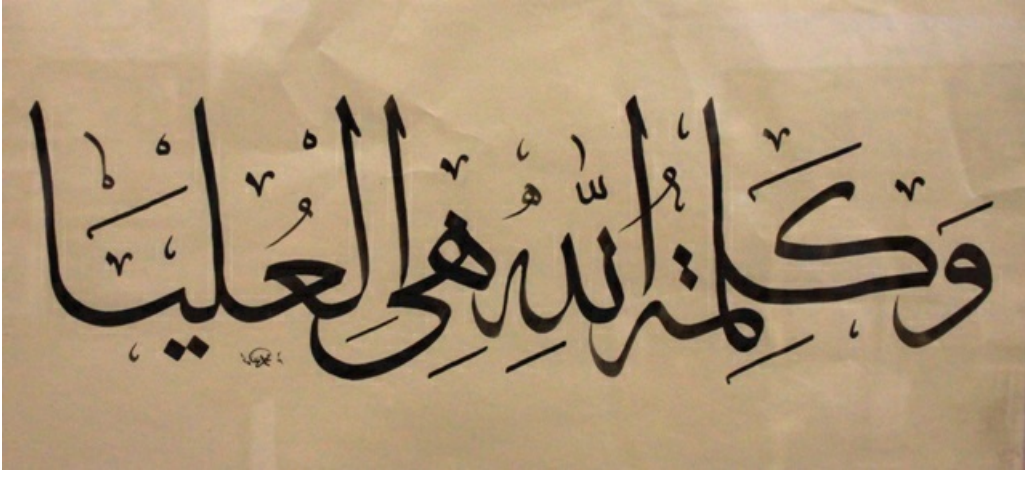 وَكَلِمَةُ اللّٰهِ هِيَ الْعُلْيَا